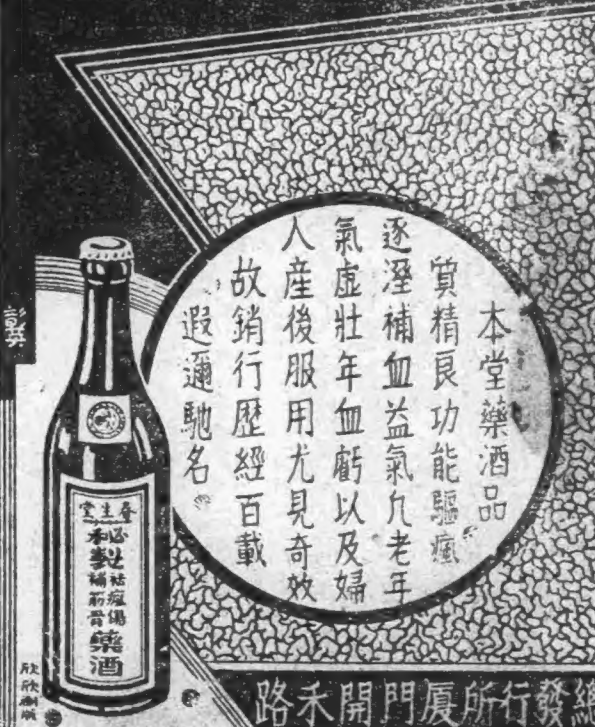 本堂藥酒品
質精良功能驅瘋
逐溼補血益氣凢老年
氣虛壯年血虧以及婦
人産後服用尤見奇效
故銷行歷經百載
遐邇馳名
春生堂
秘製
祛瘋傷
補筋骨
藥酒
總發行所厦門開禾路
欣欣